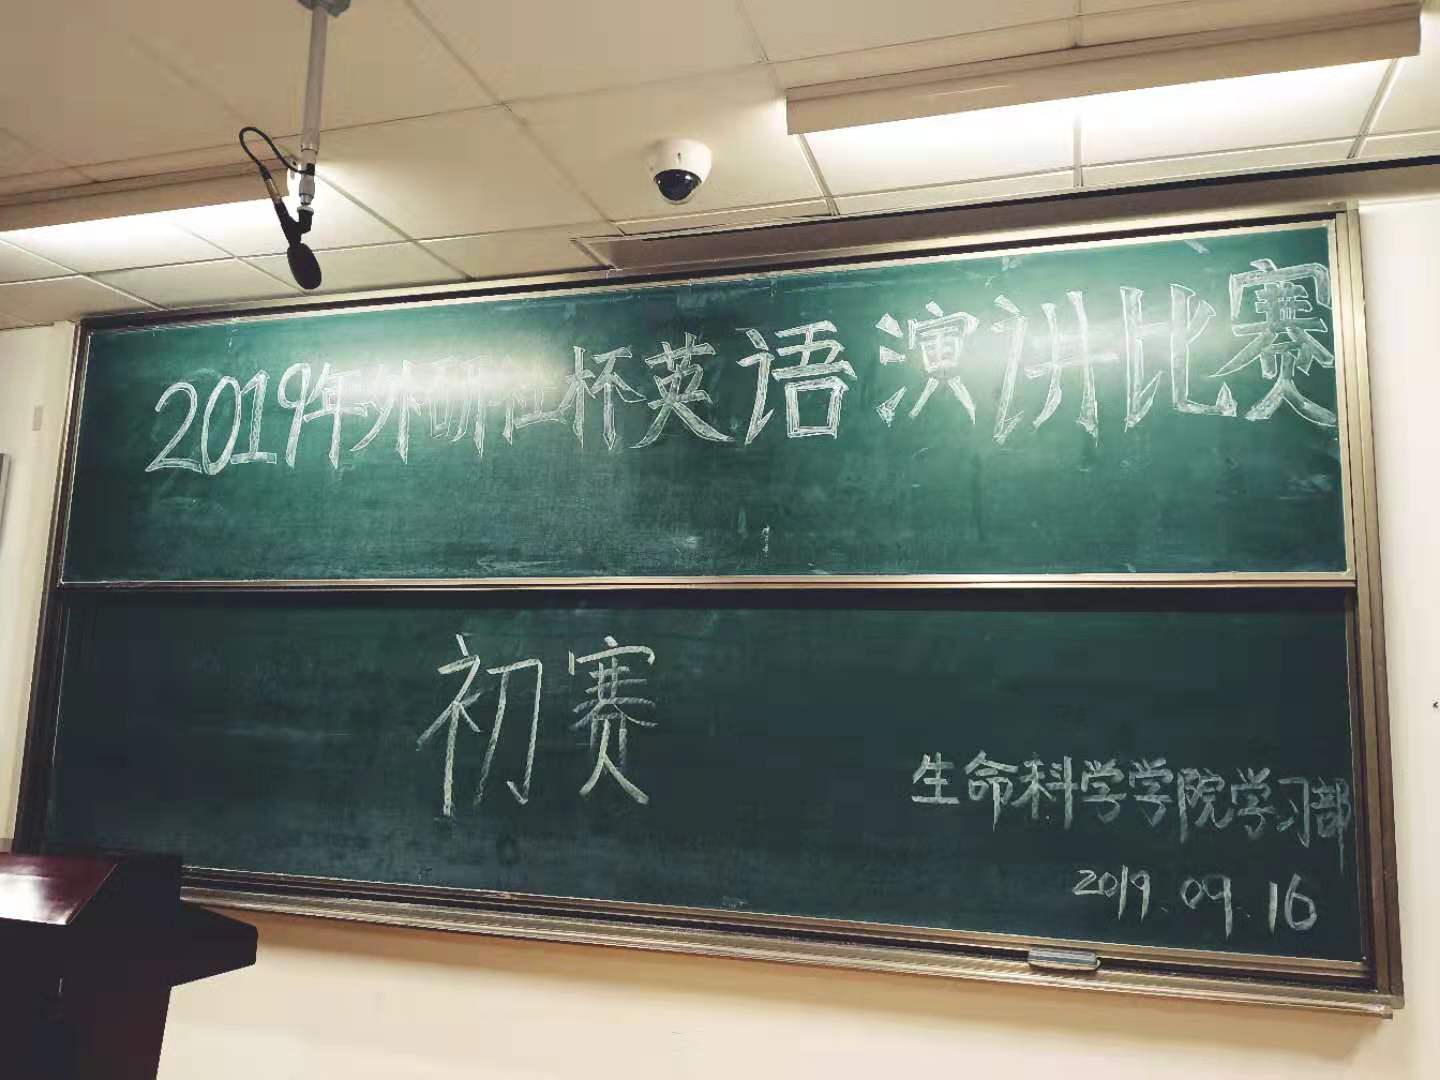 2019年外研社杯英语演讲比赛
初赛
生命科学学院学习部
2019.09.16